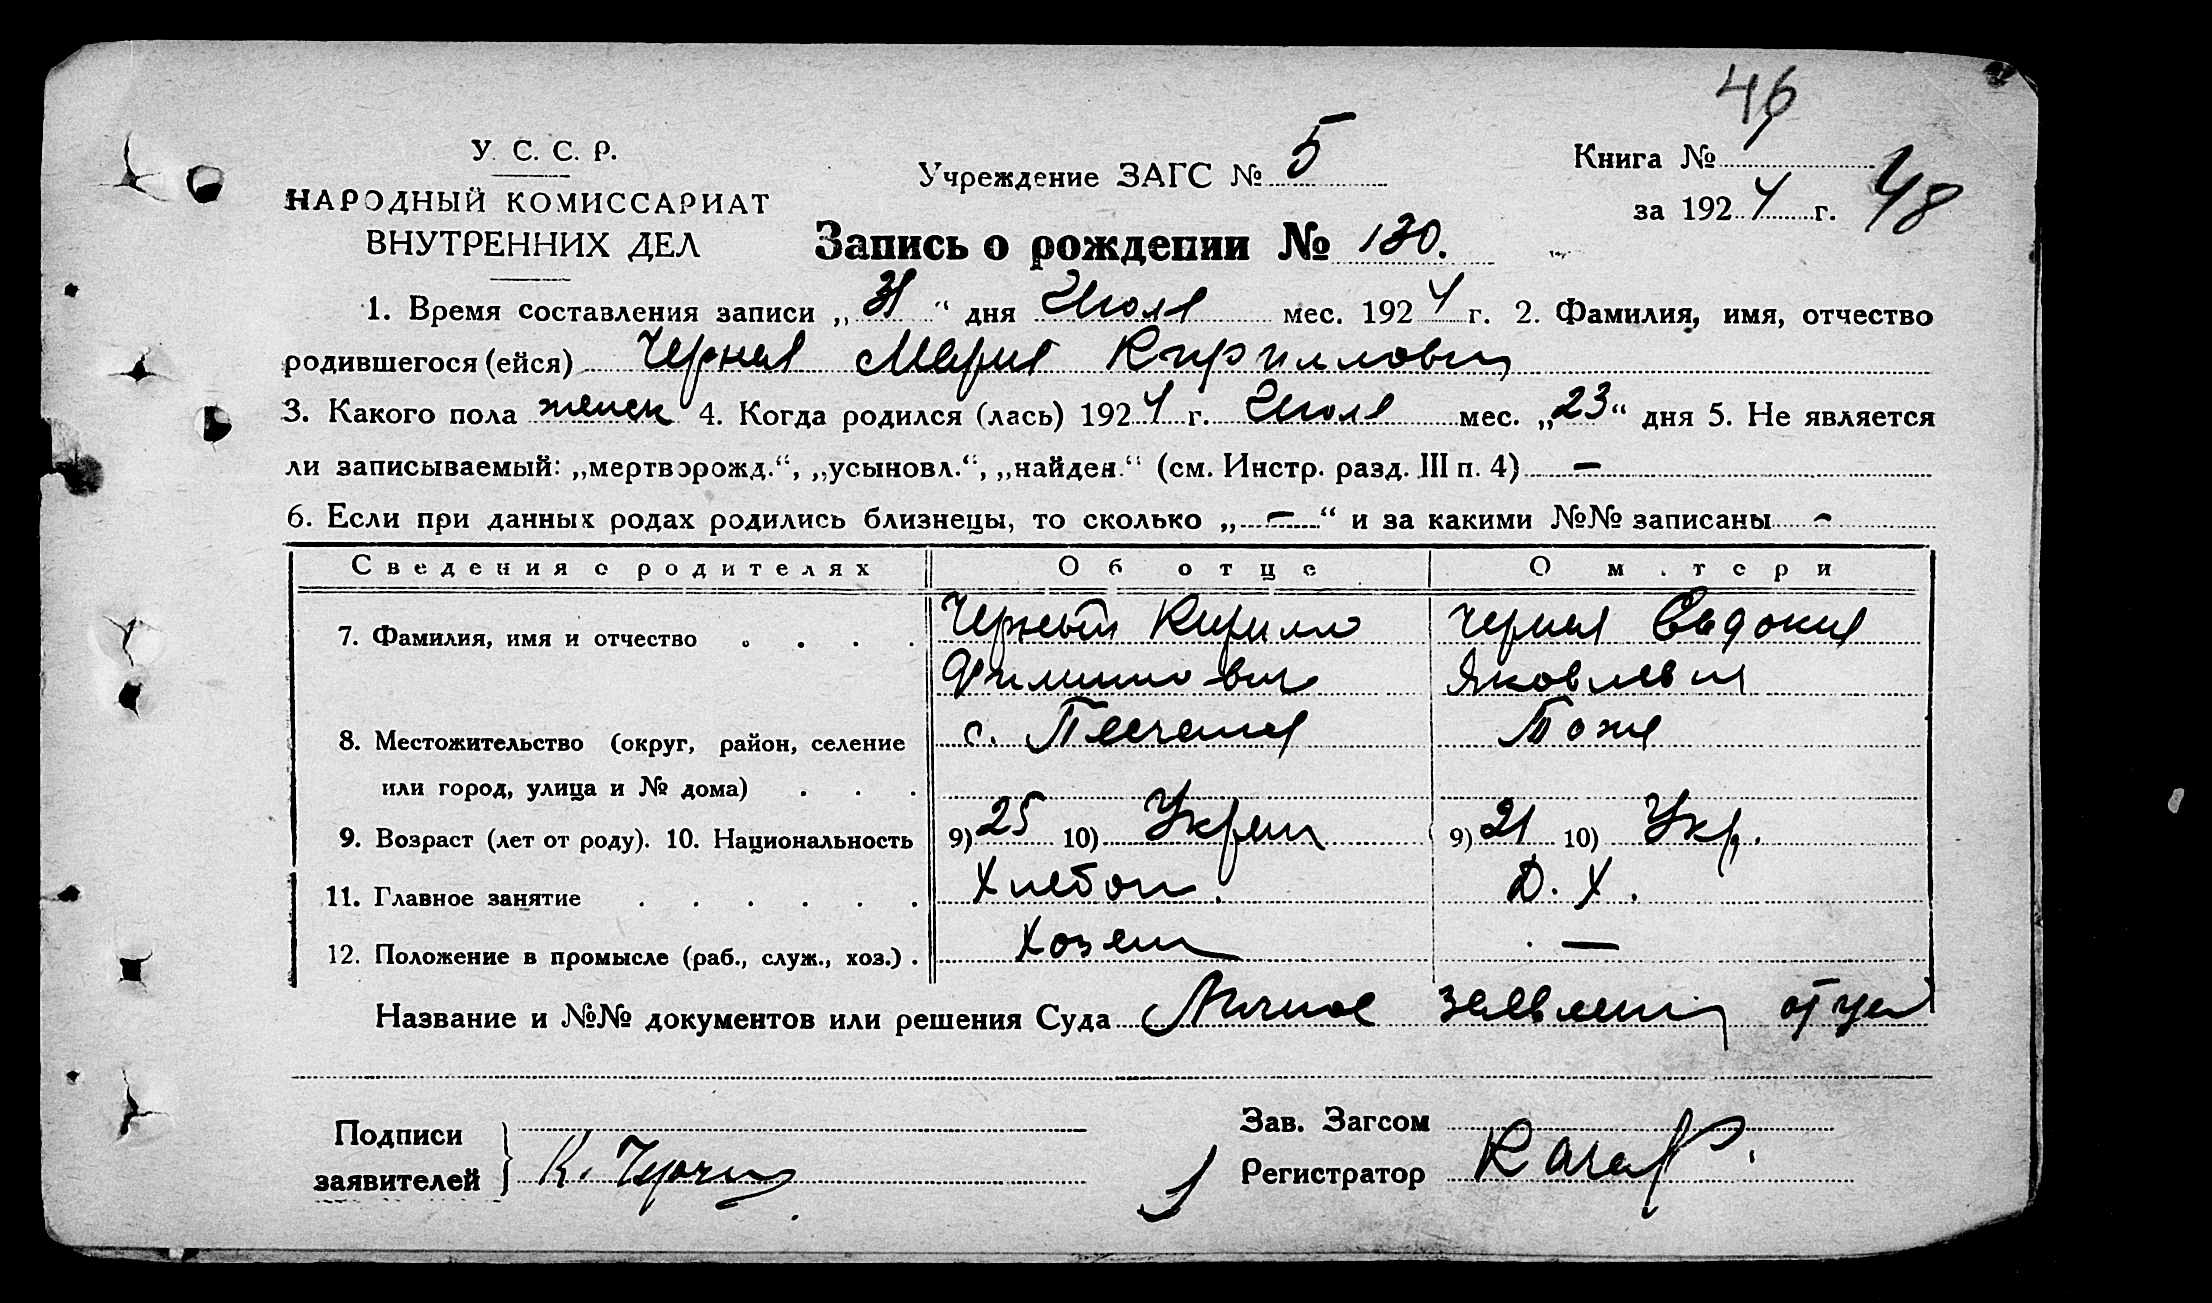 46
У. С. С. Р.
НАРОДНЫЙ КОМИССАРИАТ
ВНУТРЕННИХ ДЕЛ
Учреждение ЗАГС № 5
Книга №
за 1924 г. 48
Запись о рождении № 130.
1. Время составления записи „31“ дня Июля мес. 1924 г. 2. Фамилия, имя, отчество
родившегося (ейся) Черная Мария Кирилловн
3. Какого пола женск 4. Когда родился (лась) 1924 г. Июля мес. „23“ дня 5. Не является
ли записываемый: „мертворожд.“, „усыновл.“, „найден.“ (см. Инстр. разд. III п. 4) —
6. Если при данных родах родились близнецы, то сколько „—“ и за какими №№ записаны -
Сведения о родителях Об отце О м.тери
7. Фамилия, имя и отчество . . . . Черный Кирилл Черная Евдокия
Филиппович Яковлевна
8. Местожительство (округ, район, селение с. Песчаная Тоже
или город, улица и № дома) . . .
9. Возраст (лет от роду). 10. Национальность 9) 25 10) Украин 9) 21 10) Укр.
11. Главное занятие . . . . . . Хлебоп. Д. Х.
12. Положение в промысле (раб., служ., хоз.) . Хозяин —
Название и №№ документов или решения Суда Личное заявлени отца
Подписи
заявителей } К. Чорний
Зав. Загсом
Регистратор